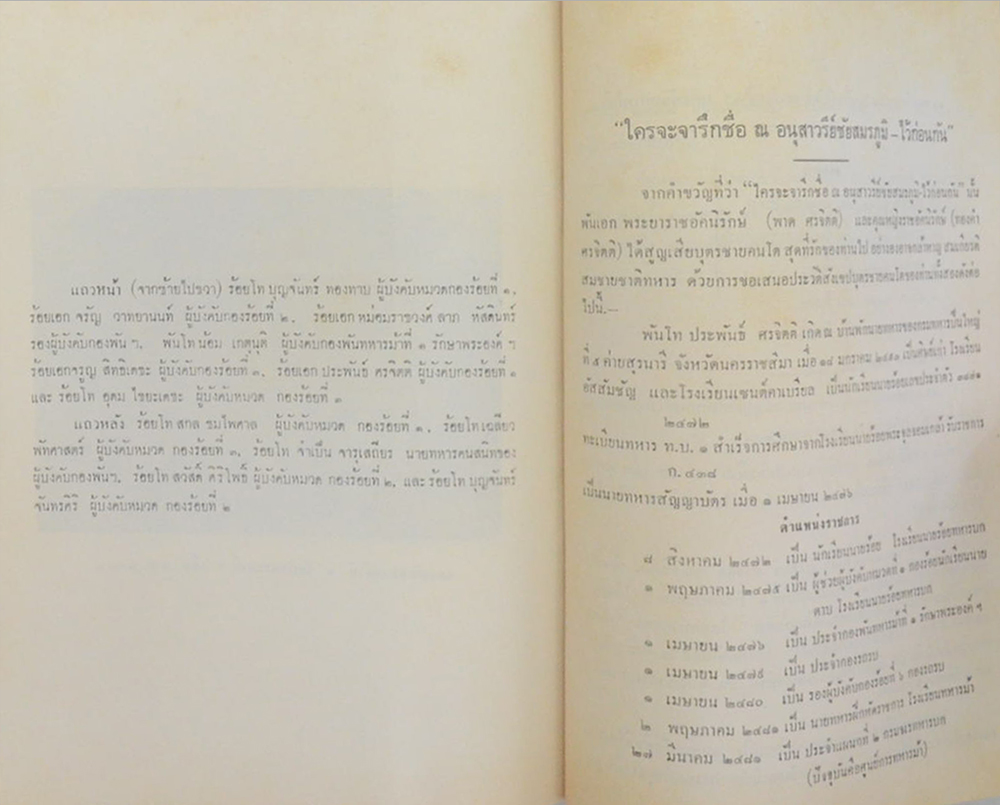 แถวหน้า (จากซ้ายไปขวา) ร้อยโท บุญจันทร์ ทองทาบ ผู้บังคับหมวดกองร้อยที่ ๑,
ร้อยเอก จรัญ วาทยานนท์ ผู้บังคับกองร้อยที่ ๒, ร้อยเอก หม่อมราชวงศ์ ลาภ หัสดินทร์
รองผู้บังคับกองพัน ฯ, พันโท น้อม เกตุนุติ ผู้บังคับกองพันทหารม้าที่ ๑ รักษาพระองค์ ฯ
ร้อยเอกจรูญ สิทธิเดชะ ผู้บังคับกองร้อยที่ ๓, ร้อยเอก ประพันธ์ ศรจิตติ ผู้บังคับกองร้อยที่ ๑
และ ร้อยโท อุดม ไชยะเดชะ ผู้บังคับหมวด กองร้อยที่ ๑
แถวหลัง ร้อยโท สกล ชมไพศาล ผู้บังคับหมวด กองร้อยที่ ๑, ร้อยโท เฉลียว
พัทศาสตร์ ผู้บังคับหมวด กองร้อยที่ ๓, ร้อยโท จำเป็น จารุเสถียร นายทหารคนสนิทของ
ผู้บังคับกองพันฯ, ร้อยโท สวัสดิ์ ศิริโพธิ์ ผู้บังคับหมวด กองร้อยที่ ๒, และ ร้อยโท บุญจันทร์
จันทรศิริ ผู้บังคับหมวด กองร้อยที่ ๒
“ใครจะจารึกชื่อ ณ อนุสาวรีย์ชัยสมรภูมิ – ไว้ก่อนกัน”
จากคำขวัญที่ว่า “ใครจะจารึกชื่อ ณ อนุสาวรีย์ชัยสมรภูมิ-ไว้ก่อนกัน” นั้น
พันเอก พระยาราชอัคนิรักษ์ (พาด ศรจิตติ) และคุณหญิงราชอัคนิรักษ์ (ทองคำ
ศรจิตติ) ได้สูญเสียบุตรชายคนโต สุดที่รักของท่านไป อย่างองอาจกล้าหาญ สมเกียรติ
สมชายชาติทหาร ด้วยการขอเสนอประวัติสังเขปบุตรชายคนโตของท่านทั้งสองดังต่อ
ไปนี้.—
พันโท ประพันธ์ ศรจิตติ เกิดณ บ้านพักนายทหารของกรมทหารปืนใหญ่
ที่ ๕ ค่ายสุรนารี จังหวัดนครราชสิมา เมื่อ ๑๔ มกราคม ๒๔๕๑ เป็นศิษย์เก่า โรงเรียน
อัสสัมชัญ และโรงเรียนเซนต์คาเบรียล เป็นนักเรียนนายร้อยเลขประจำตัว ๓๘๗๑
๒๔๗๒
ทะเบียนทหาร ท.บ. ๑ สำเร็จการศึกษาจากโรงเรียนนายร้อยพระจุลจอมเกล้า รับราชการ
ก. ๔๓๘
เป็นนายทหารสัญญาบัตร เมื่อ ๑ เมษายน ๒๔๗๖
ตำแหน่งราชการ
๘ สิงหาคม ๒๔๗๒ เป็น นักเรียนนายร้อย โรงเรียนนายร้อยทหารบก
๑ พฤษภาคม ๒๔๗๕ เป็น ผู้ช่วยผู้บังคับหมวดที่ ๑ กองร้อยนักเรียนนาย
ดาบ โรงเรียนนายร้อยทหารบก
๑ เมษายน ๒๔๗๖ เป็น ประจำกองพันทหารม้าที่ ๑ รักษาพระองค์ ฯ
๑ เมษายน ๒๔๗๙ เป็น ประจำกองรถรบ
๑ เมษายน ๒๔๘๐ เป็น รองผู้บังคับกองร้อยที่ ๖ กองรถรบ
๒ พฤษภาคม ๒๔๘๑ เป็น นายทหารฝึกหัดราชการ โรงเรียนทหารม้า
๒๗ มีนาคม ๒๔๘๑ เป็น ประจำแผนกที่ ๒ กรมจเรทหารบก
(ปัจจุบันคือศูนย์การทหารม้า)